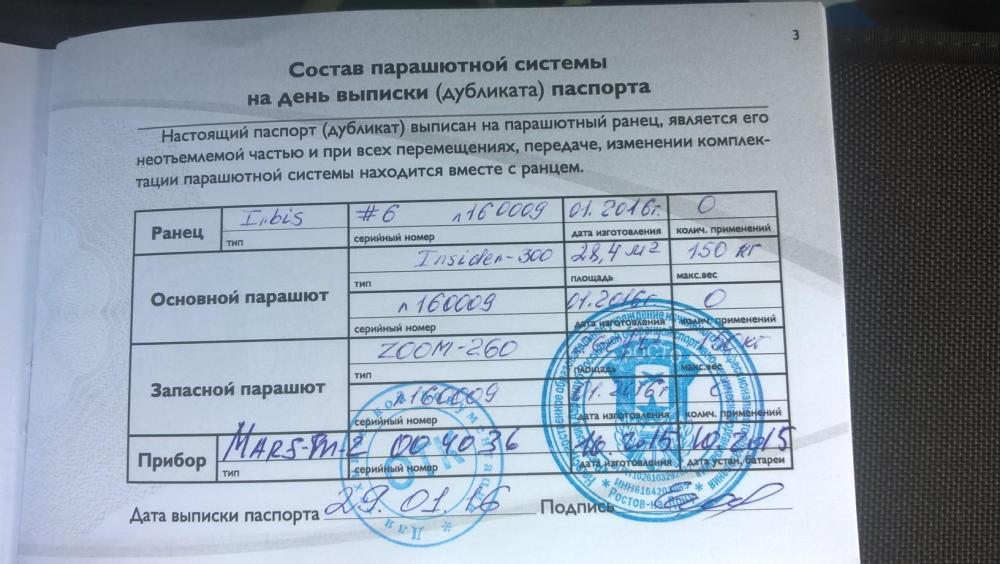 3
Состав парашютной системы
на день выписки (дубликата) паспорта
Настоящий паспорт (дубликат) выписан на парашютный ранец, является его
неотъемлемой частью и при всех перемещениях, передаче, изменении комплек-
тации парашютной системы находится вместе с ранцем.
Ранец Irbis #6 л160009 01.2016г. 0
тип серийный номер дата изготовления колич. применений
Основной парашют Insider-300 28,4 м² 150 кг
тип площадь макс.вес
л160009 01.2016г. 0
серийный номер дата изготовления колич. применений
Запасной парашют ZOOM-260 кг
тип площадь макс.вес
л160009 01.2016г
серийный номер дата изготовления колич. применений
Прибор MARS-m-2 004036 10.2015 10.2015
тип серийный номер дата изготовления дата устан. батареи
Дата выписки паспорта 29.01.16 Подпись
ОТК
Для
Ростов-на-Дону